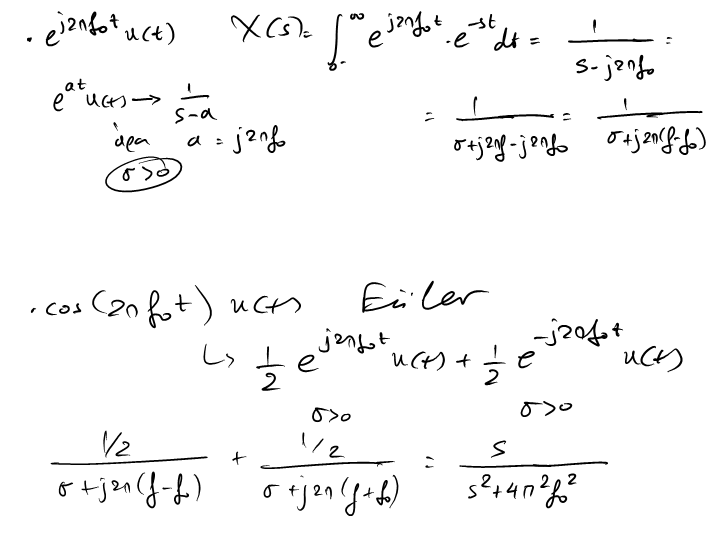 · e^{j2πf₀t} u(t)   X(s) = ∫_{0⁻}^{∞} e^{j2πf₀t} · e^{-st} dt = 1/(s - j2πf₀) =
e^{at} u(t) → 1/(s-a)   = 1/(σ+j2πf - j2πf₀) = 1/(σ+j2π(f-f₀))
άρα a = j2πf₀
σ>0
· cos(2πf₀t) u(t)   Euler
↳ 1/2 e^{j2πf₀t} u(t) + 1/2 e^{-j2πf₀t} u(t)
σ>0   σ>0
(1/2)/(σ+j2π(f-f₀)) + (1/2)/(σ+j2π(f+f₀)) = s/(s²+4π²f₀²)